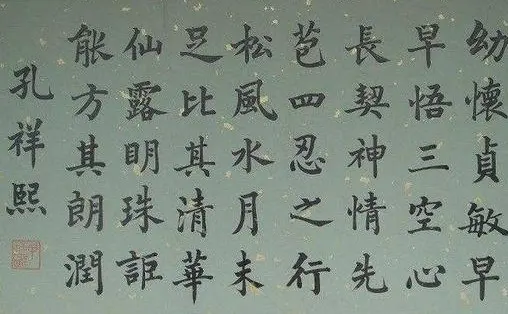 幼懷貞敏早
早悟三空心
長契神情先
苞四忍之行
松風水月未
足比其清華
仙露明珠詎
能方其朗潤
孔祥熙